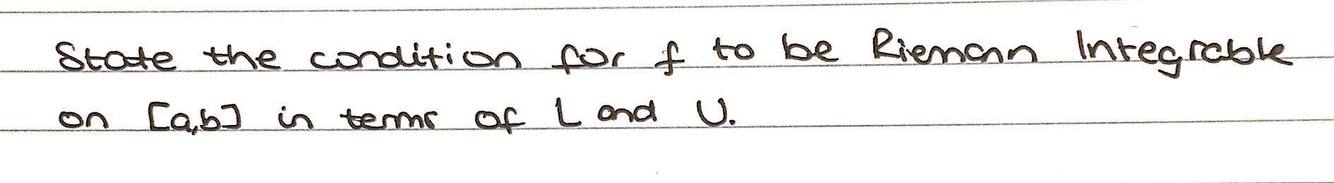 State the condition for f to be Riemann Integrable
on [a,b] in terms of L and U.